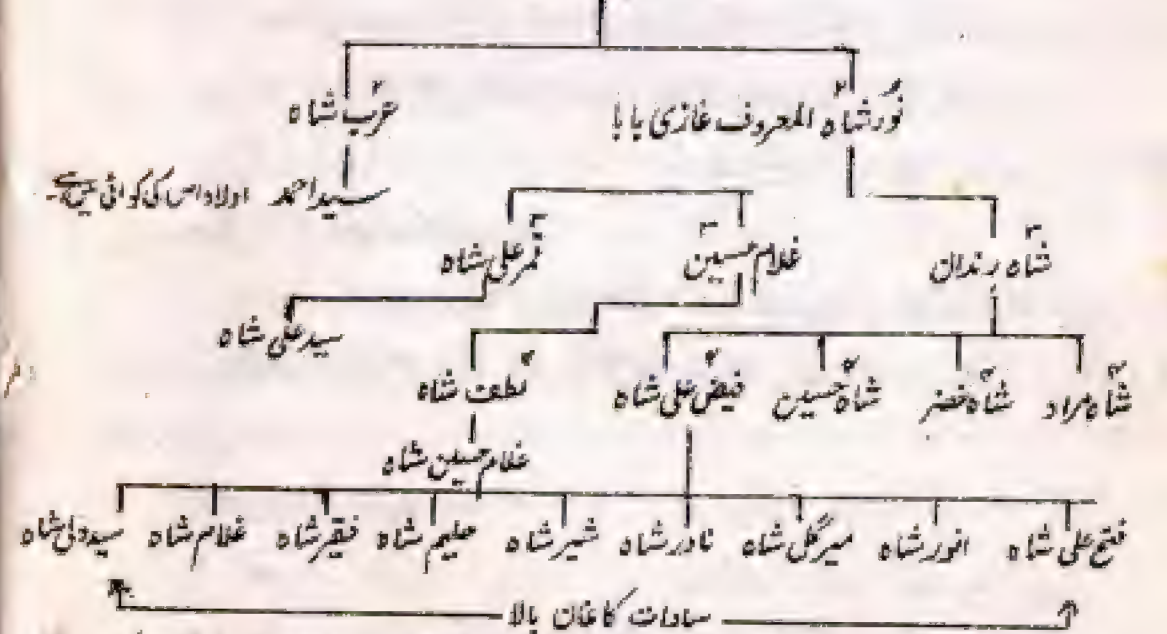 نور شاہ المعروف غازی بابا    عرب شاہ
سید احمد اولاد اس کی کوائی میں ہے۔
شاہ رندان    غلام حسین    قمر علی شاہ
سید علی شاہ
شاہ مراد    شاہ خضر    شاہ حسین    فیض علی شاہ    لطف شاہ
غلام حسین شاہ
فتح علی شاہ    انور شاہ    میر گل شاہ    نادر شاہ    شیر شاہ    حلیم شاہ    فقیر شاہ    غلام شاہ    سید ولی شاہ
سادات کاغان بالا